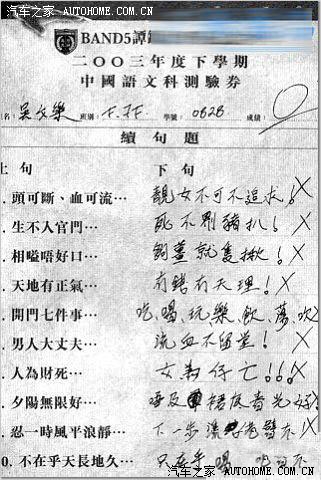 汽车之家 AUTOHOME.COM.CN
汽车之家 AUTOHOME.COM.CN
BAND5譚
二〇〇三年度下學期
中國語文科測驗券
名: 班別: F. 學號: 0626 成績: 0
續句題
上句 下句
. 頭可斷、血可流… 靚女不可不追求! X
. 生不人官門… 死不劏豬扒! X
. 相嗌唔好口… 就隻揪! X
. 天地有正氣… 有錢有天理! X
. 開門七件事… 吃、喝、玩、樂、飲、蕩、吹
. 男人大丈夫… 流血不留堂! X
. 人為財死… 女為仔亡!!! X
. 夕陽無限好… 唔及 着光好!
. 忍一時風平浪靜… 下一步
0. 不在乎天長地久… 只在乎
汽车之家 AUTOHOME.COM.CN
汽车之家 AUTOHOME.COM.CN